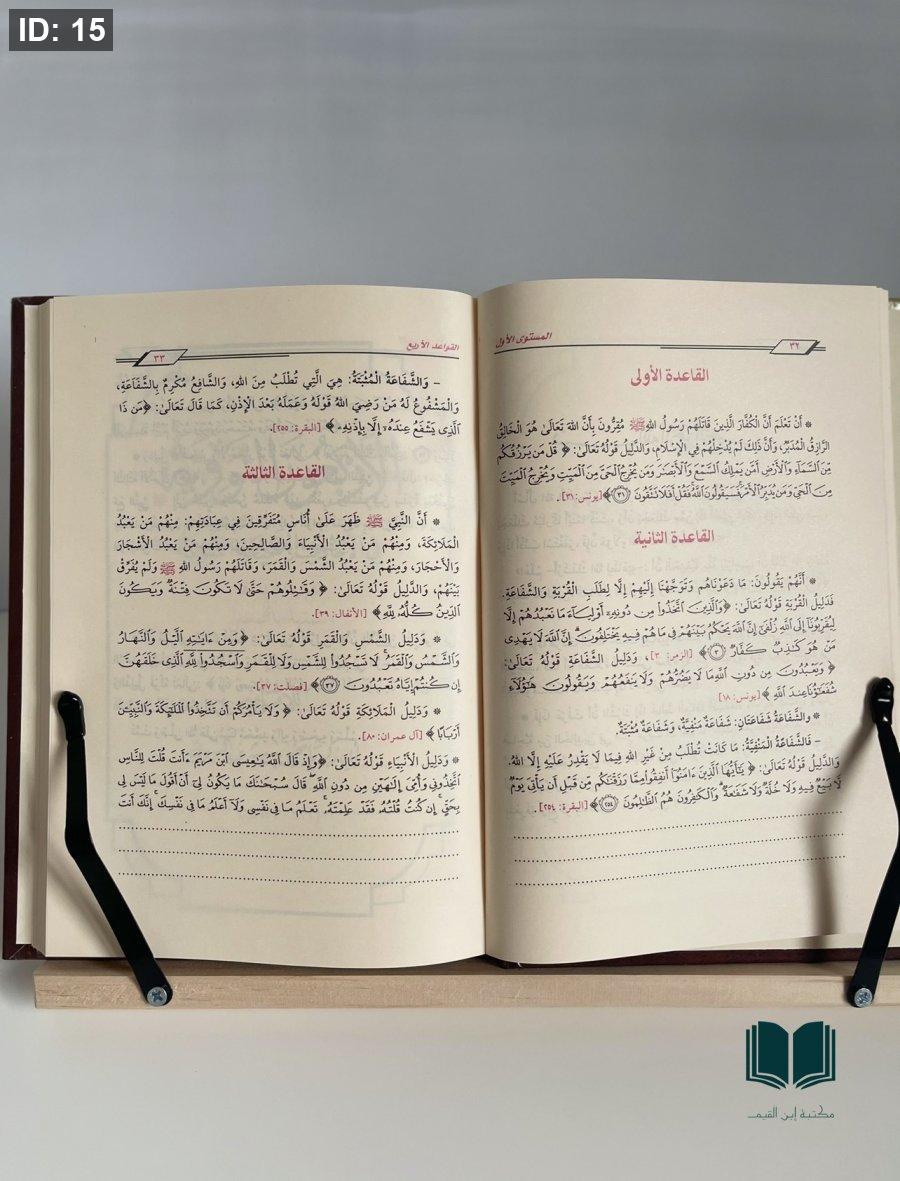 ID: 15
المستوى الأول
٣٢
القاعدة الأولى
* أَنْ تَعْلَمَ أَنَّ الْكُفَّارَ الَّذِينَ قَاتَلَهُمْ رَسُولُ اللهِ ﷺ مُقِرُّونَ بِأَنَّ اللهَ تَعَالَىٰ هُوَ الْخَالِقُ
الرَّازِقُ الْمُدَبِّرُ، وَأَنَّ ذَلِكَ لَمْ يُدْخِلْهُمْ فِي الإِسْلَامِ، وَالدَّلِيلُ قَوْلُهُ تَعَالَىٰ: ﴿ قُلْ مَن يَرْزُقُكُم
مِّنَ السَّمَاءِ وَالْأَرْضِ أَمَّن يَمْلِكُ السَّمْعَ وَالْأَبْصَارَ وَمَن يُخْرِجُ الْحَيَّ مِنَ الْمَيِّتِ وَيُخْرِجُ الْمَيِّتَ
مِنَ الْحَيِّ وَمَن يُدَبِّرُ الْأَمْرَ فَسَيَقُولُونَ اللَّهُ فَقُلْ أَفَلَا تَتَّقُونَ ٣١﴾ [يونس: ٣١].
القاعدة الثانية
* أَنَّهُمْ يَقُولُونَ: مَا دَعَوْنَاهُمْ وَتَوَجَّهْنَا إِلَيْهِمْ إِلَّا لِطَلَبِ الْقُرْبَةِ وَالشَّفَاعَةِ.
فَدَلِيلُ الْقُرْبَةِ قَوْلُهُ تَعَالَىٰ: ﴿وَالَّذِينَ اتَّخَذُوا مِن دُونِهِ أَوْلِيَاءَ مَا نَعْبُدُهُمْ إِلَّا
لِيُقَرِّبُونَا إِلَى اللَّهِ زُلْفَىٰ إِنَّ اللَّهَ يَحْكُمُ بَيْنَهُمْ فِي مَا هُمْ فِيهِ يَخْتَلِفُونَ إِنَّ اللَّهَ لَا يَهْدِي
مَنْ هُوَ كَاذِبٌ كَفَّارٌ ٣﴾ [الزمر: ٣]، وَدَلِيلُ الشَّفَاعَةِ قَوْلُهُ تَعَالَىٰ:
﴿ وَيَعْبُدُونَ مِن دُونِ اللَّهِ مَا لَا يَضُرُّهُمْ وَلَا يَنفَعُهُمْ وَيَقُولُونَ هَٰؤُلَاءِ
شُفَعَاؤُنَا عِندَ اللَّهِ ﴾ [يونس: ١٨]
* وَالشَّفَاعَةُ شَفَاعَتَانِ: شَفَاعَةٌ مَنْفِيَّةٌ، وَشَفَاعَةٌ مُثْبَتَةٌ.
- فَالشَّفَاعَةُ الْمَنْفِيَّةُ: مَا كَانَتْ تُطْلَبُ مِنْ غَيْرِ اللهِ فِيمَا لَا يَقْدِرُ عَلَيْهِ إِلَّا اللهُ.
وَالدَّلِيلُ قَوْلُهُ تَعَالَىٰ: ﴿ يَا أَيُّهَا الَّذِينَ آمَنُوا أَنفِقُوا مِمَّا رَزَقْنَاكُم مِّن قَبْلِ أَن يَأْتِيَ يَوْمٌ
لَّا بَيْعٌ فِيهِ وَلَا خُلَّةٌ وَلَا شَفَاعَةٌ وَالْكَافِرُونَ هُمُ الظَّالِمُونَ ٢٥٤﴾ [البقرة: ٢٥٤].
القواعد الأربع
٣٣
- وَالشَّفَاعَةُ الْمُثْبَتَةُ: هِيَ الَّتِي تُطْلَبُ مِنَ اللهِ، وَالشَّافِعُ مُكْرَمٌ بِالشَّفَاعَةِ،
وَالْمَشْفُوعُ لَهُ مَنْ رَضِيَ اللهُ قَوْلَهُ وَعَمَلَهُ بَعْدَ الْإِذْنِ، كَمَا قَالَ تَعَالَىٰ: ﴿مَن ذَا
الَّذِي يَشْفَعُ عِندَهُ إِلَّا بِإِذْنِهِ ﴾ [البقرة: ٢٥٥].
القاعدة الثالثة
* أَنَّ النَّبِيَّ ﷺ ظَهَرَ عَلَىٰ أُنَاسٍ مُتَفَرِّقِينَ فِي عِبَادَتِهِمْ: مِنْهُمْ مَنْ يَعْبُدُ
الْمَلَائِكَةَ، وَمِنْهُمْ مَنْ يَعْبُدُ الْأَنْبِيَاءَ وَالصَّالِحِينَ، وَمِنْهُمْ مَنْ يَعْبُدُ الْأَشْجَارَ
وَالْأَحْجَارَ، وَمِنْهُمْ مَنْ يَعْبُدُ الشَّمْسَ وَالْقَمَرَ، وَقَاتَلَهُمْ رَسُولُ اللهِ ﷺ وَلَمْ يُفَرِّقْ
بَيْنَهُمْ، وَالدَّلِيلُ قَوْلُهُ تَعَالَىٰ: ﴿ وَقَاتِلُوهُمْ حَتَّىٰ لَا تَكُونَ فِتْنَةٌ وَيَكُونَ
الدِّينُ كُلُّهُ لِلَّهِ﴾ [الأنفال: ٣٩].
* وَدَلِيلُ الشَّمْسِ وَالْقَمَرِ قَوْلُهُ تَعَالَىٰ: ﴿وَمِنْ آيَاتِهِ اللَّيْلُ وَالنَّهَارُ
وَالشَّمْسُ وَالْقَمَرُ لَا تَسْجُدُوا لِلشَّمْسِ وَلَا لِلْقَمَرِ وَاسْجُدُوا لِلَّهِ الَّذِي خَلَقَهُنَّ
إِن كُنتُمْ إِيَّاهُ تَعْبُدُونَ ٣٧﴾ [فصلت: ٣٧].
* وَدَلِيلُ الْمَلَائِكَةِ قَوْلُهُ تَعَالَىٰ: ﴿ وَلَا يَأْمُرَكُمْ أَن تَتَّخِذُوا الْمَلَائِكَةَ وَالنَّبِيِّينَ
أَرْبَابًا ﴾ [آل عمران: ٨٠].
* وَدَلِيلُ الْأَنْبِيَاءِ قَوْلُهُ تَعَالَىٰ: ﴿وَإِذْ قَالَ اللَّهُ يَا عِيسَى ابْنَ مَرْيَمَ أَأَنتَ قُلْتَ لِلنَّاسِ
اتَّخِذُونِي وَأُمِّيَ إِلَٰهَيْنِ مِن دُونِ اللَّهِ قَالَ سُبْحَانَكَ مَا يَكُونُ لِي أَنْ أَقُولَ مَا لَيْسَ لِي
بِحَقٍّ إِن كُنتُ قُلْتُهُ فَقَدْ عَلِمْتَهُ تَعْلَمُ مَا فِي نَفْسِي وَلَا أَعْلَمُ مَا فِي نَفْسِكَ إِنَّكَ أَنتَ
مكتبة إبن القيم